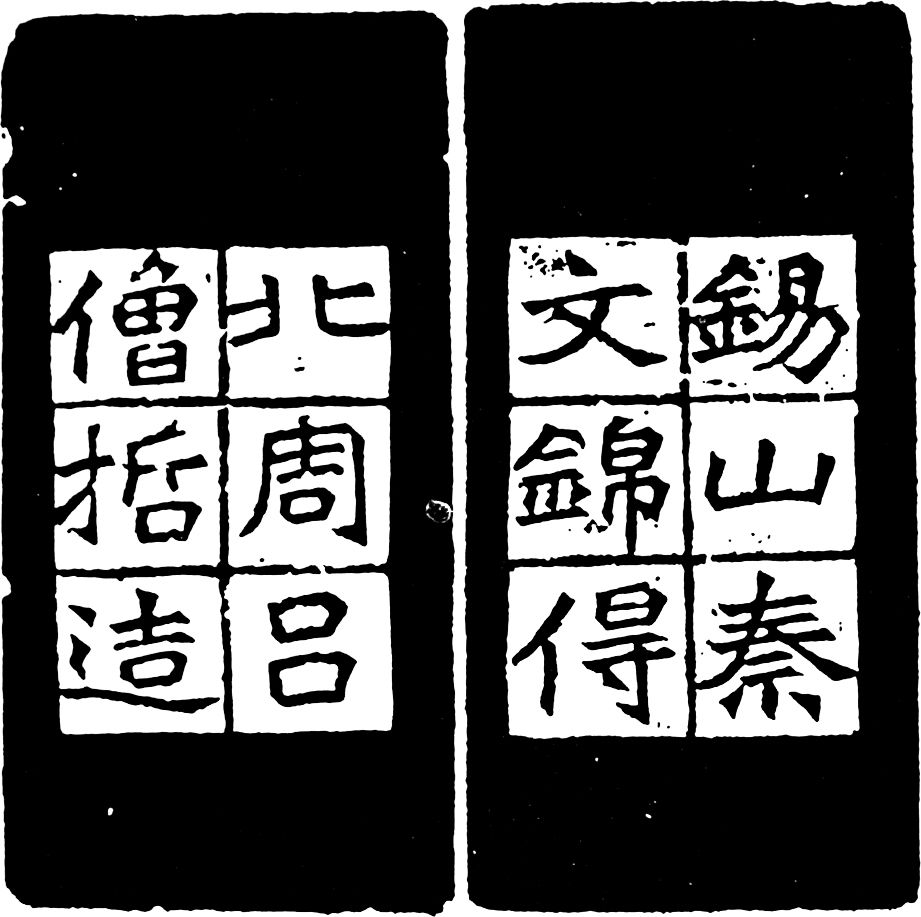 錫山秦
文錦得
北周呂
僧哲造